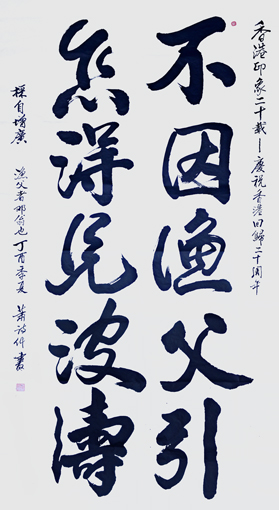 香港印象二十載—慶祝香港回歸二十周年
不因漁父引
怎得見波濤
採自增廣 漁父者 翁也 丁酉季夏 蕭